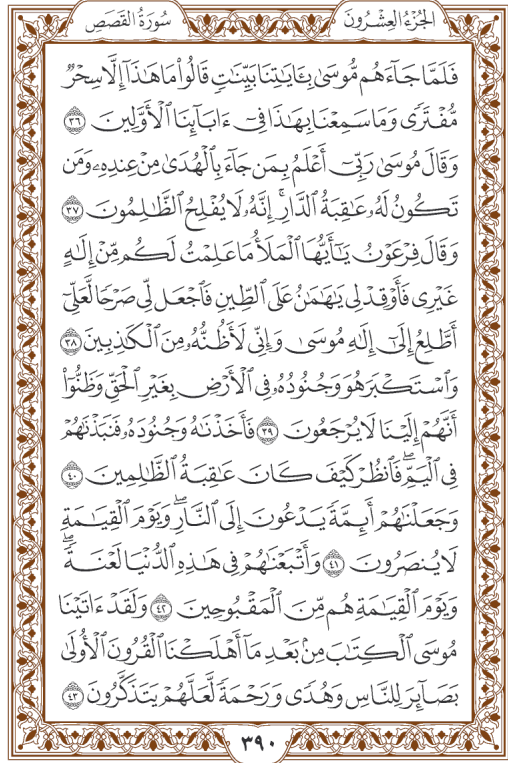 الجُزْءُ العِشْرُونَ
سُورَةُ القَصَصِ
فَلَمَّا جَآءَهُم مُّوسَىٰ بِـَٔايَٰتِنَا بَيِّنَٰتٖ قَالُواْ مَا هَٰذَآ إِلَّا سِحۡرٞ
مُّفۡتَرٗى وَمَا سَمِعۡنَا بِهَٰذَا فِيٓ ءَابَآئِنَا ٱلۡأَوَّلِينَ ٣٦
وَقَالَ مُوسَىٰ رَبِّيٓ أَعۡلَمُ بِمَن جَآءَ بِٱلۡهُدَىٰ مِنۡ عِندِهِۦ وَمَن
تَكُونُ لَهُۥ عَٰقِبَةُ ٱلدَّارِۚ إِنَّهُۥ لَا يُفۡلِحُ ٱلظَّٰلِمُونَ ٣٧
وَقَالَ فِرۡعَوۡنُ يَٰٓأَيُّهَا ٱلۡمَلَأُ مَا عَلِمۡتُ لَكُم مِّنۡ إِلَٰهٍ
غَيۡرِي فَأَوۡقِدۡ لِي يَٰهَٰمَٰنُ عَلَى ٱلطِّينِ فَٱجۡعَل لِّي صَرۡحٗا لَّعَلِّيٓ
أَطَّلِعُ إِلَىٰٓ إِلَٰهِ مُوسَىٰ وَإِنِّي لَأَظُنُّهُۥ مِنَ ٱلۡكَٰذِبِينَ ٣٨
وَٱسۡتَكۡبَرَ هُوَ وَجُنُودُهُۥ فِي ٱلۡأَرۡضِ بِغَيۡرِ ٱلۡحَقِّ وَظَنُّوٓاْ
أَنَّهُمۡ إِلَيۡنَا لَا يُرۡجَعُونَ ٣٩ فَأَخَذۡنَٰهُ وَجُنُودَهُۥ فَنَبَذۡنَٰهُمۡ
فِي ٱلۡيَمِّۖ فَٱنظُرۡ كَيۡفَ كَانَ عَٰقِبَةُ ٱلظَّٰلِمِينَ ٤٠
وَجَعَلۡنَٰهُمۡ أَئِمَّةٗ يَدۡعُونَ إِلَى ٱلنَّارِۖ وَيَوۡمَ ٱلۡقِيَٰمَةِ
لَا يُنصَرُونَ ٤١ وَأَتۡبَعۡنَٰهُمۡ فِي هَٰذِهِ ٱلدُّنۡيَا لَعۡنَةٗۖ
وَيَوۡمَ ٱلۡقِيَٰمَةِ هُم مِّنَ ٱلۡمَقۡبُوحِينَ ٤٢ وَلَقَدۡ ءَاتَيۡنَا
مُوسَى ٱلۡكِتَٰبَ مِنۢ بَعۡدِ مَآ أَهۡلَكۡنَا ٱلۡقُرُونَ ٱلۡأُولَىٰ
بَصَآئِرَ لِلنَّاسِ وَهُدٗى وَرَحۡمَةٗ لَّعَلَّهُمۡ يَتَذَكَّرُونَ ٤٣
٣٩٠